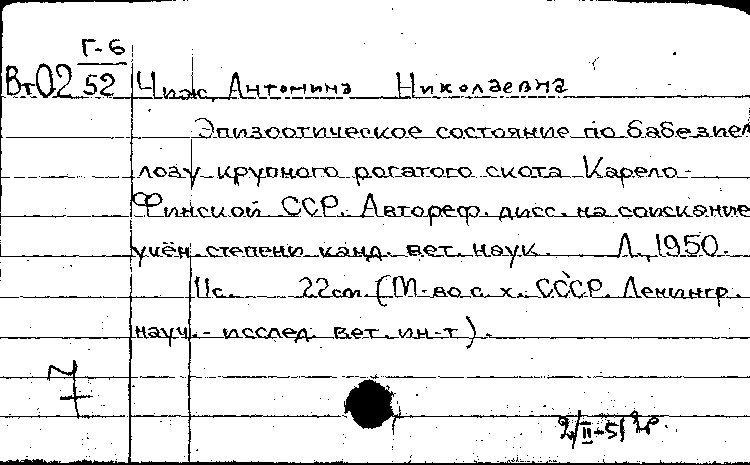 Г-6
Вт02 52 Чиж, Антонина Николаевна
Эпизоотическое состояние по бабезиел
лозу крупного рогатого скота Карело-
Финской ССР. Автореф. дисс. на соискание
учён. степени канд. вет. наук. Л., 1950.
11с. 22см. (М-во с. х. СССР. Ленингр.
науч.- исслед. вет. ин-т).
7
2/II-51